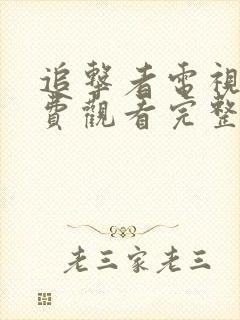 追擊者電視
費觀看完整
老三家老三